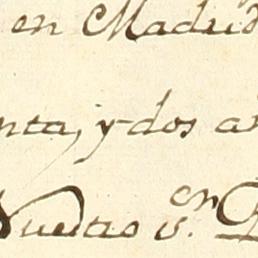 en Madrid
nta, y dos a
Nuestro S.or